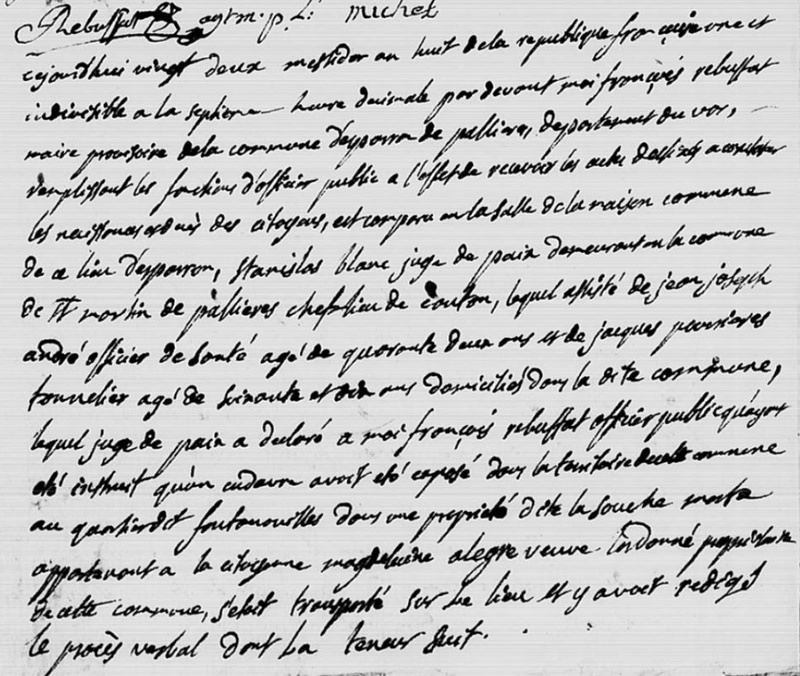 Rebuffat agt m. p. L. michel
cejourdhui vingt deux messidor an huit de la republique françoise une et
indivisible a la septieme heure decimale par devant moi françois rebuffat
maire provisoire de la commune d'esparron de pallieres, departement du var,
remplissant les fonctions d'officier public a l'effet de recevoir les actes destinés a constater
les naissances et décès des citoyens, est comparu en la salle de la maison commune
de ce lieu d'esparron, stanislas blanc juge de paix demeurant en la commune
de st martin de pallieres chef lieu de canton, lequel assisté de jean joseph
andré officier de santé agé de quarante deux ans et de jacques
tonnelier agé de soixante et dix ans domiciliés dans la dite commune,
lequel juge de paix a declaré a moi françois rebuffat officier public qu'ayant
eté instruit qu'un cadavre avoit eté exposé dans le territoire de cette commune
au quartier dit fontanouilles dans une propriété dite la souche morte
appartenant a la citoyenne magdeleine alegre veuve propriétaire
de cette commune, s'etoit transporté sur le lieu et y avoit redigé
le procès verbal dont la teneur suit.